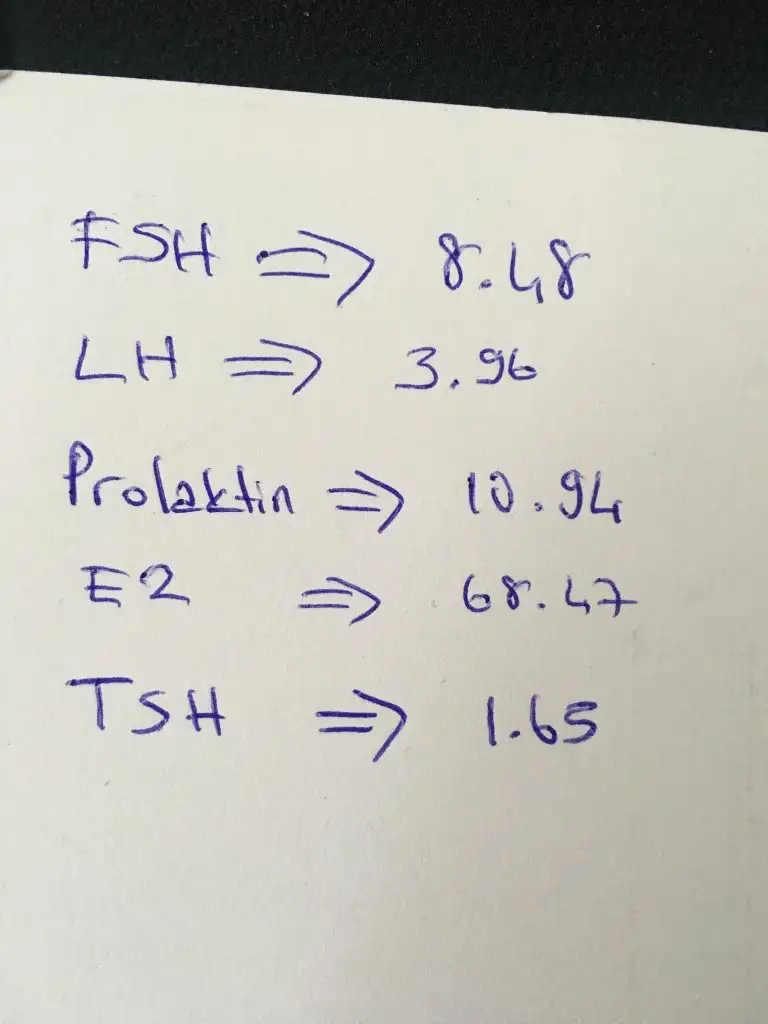 FSH => 8.48
LH => 3.96
Prolaktin => 10.94
E2 => 68.47
TSH => 1.65